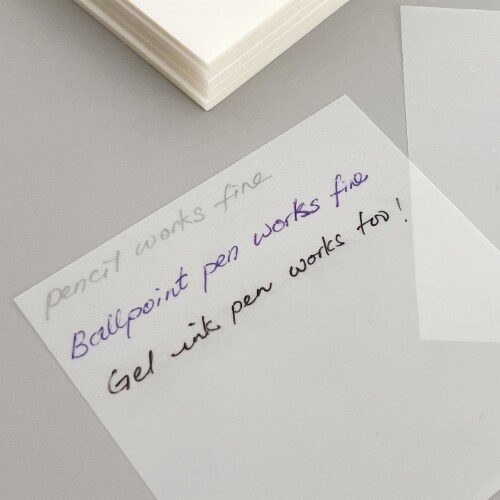 pencil works fine
Ballpoint pen works fine
Gel ink pen works too!